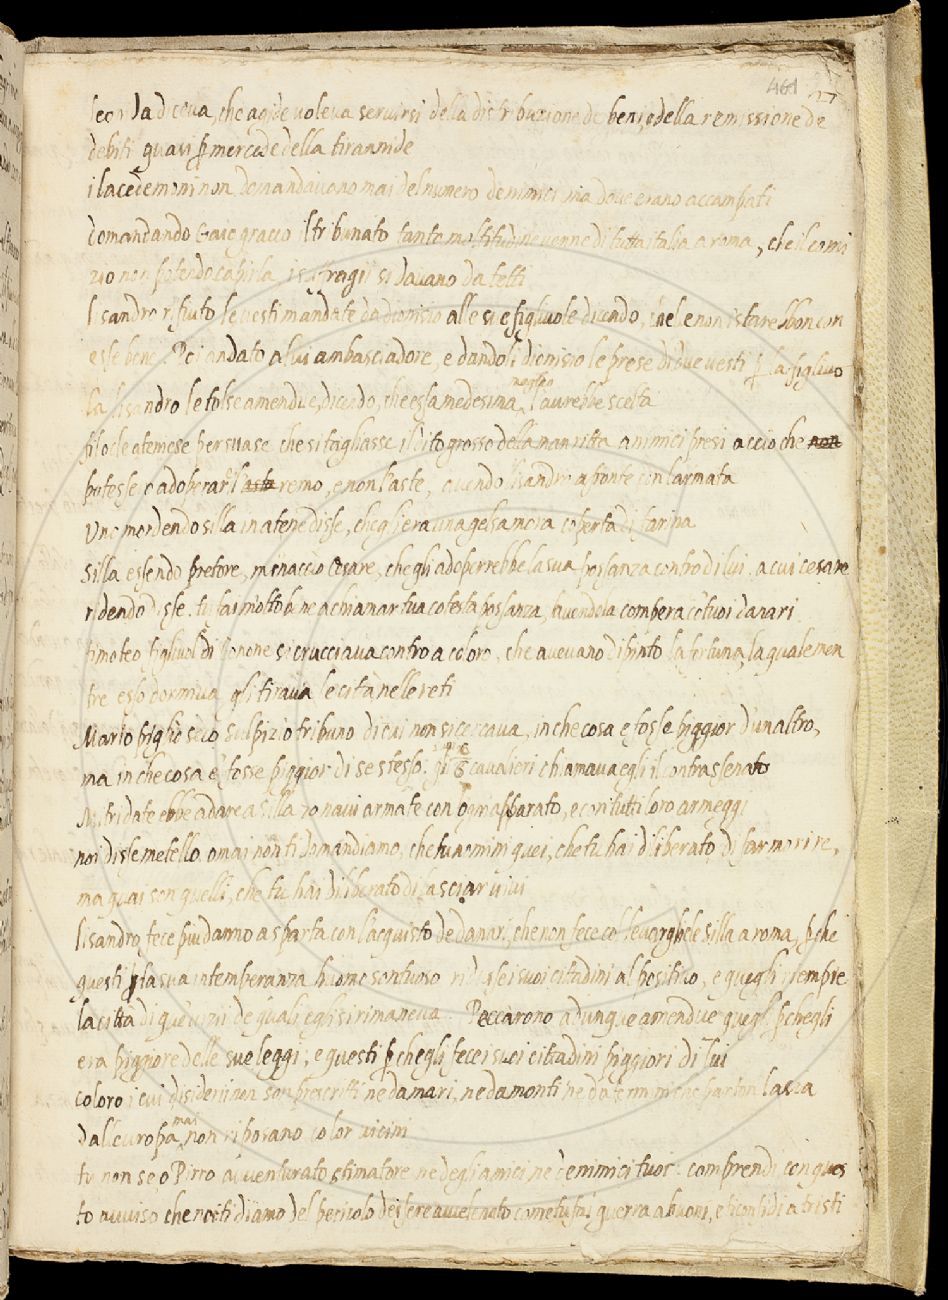 461
27
leonida diceva, che agide voleva servirsi della distribuzione de beni, e della remissione de
debiti quasi p mercede della tirannide
i lacedemoni non domandavano mai del numero de nimici ma dove erano accampati
domandando Gaio gracco il tribunato tanta moltitudine venne di tutta italia a roma, che il comi
zio non potendo capirla i suffragii si davano da tetti
lisandro rifiuto le vesti mandate da dionisio alle sue figliuole dicendo, che le non istarebbon con
esse bene. Poi andato a lui ambasciadore, e dandoli dionisio le prese di due vesti p la figliuo
la lisandro le tolse amendue, dicendo, che essa medesima meglio l'avrebbe scelta
filocle atenese persuase che si tagliasse il dito grosso della man ritta a nimici presi accio che non
potesse adoperar l'asta remo, e non l'aste, avendo lisandro a fronte con l'armata
Uno mordendo silla in atene disse, che gli era una gelsa mora coperta di farina
Silla essendo pretore, minaccio Cesare, che gli adoperrebbe la sua possanza contro di lui. a cui cesare
ridendo disse. tu fai molto bene a chiamar tua cotesta possanza, havendola compera co tuoi danari
timoteo figliuol di conone si crucciava contro a coloro, che avevano dipinto la fortuna, la quale men
tre esso dormiva gli tirava le cità nelle reti
Mario piglio seco Sulpizio tribuno di cui non si cercava, in che cosa e fosse piggior d'un altro,
ma in che cosa e fosse piggior di se stesso. gli 600 cavalieri chiamava egli il contrassenato
Mitridate ebbe a dare a silla 70 navi armate con ogni apparato, e con tutti loro armeggi
noi disse metello omai non ti domandiamo, che tu nomini quei, che tu hai diliberato di far morire,
ma quai son quelli, che tu hai diliberato di lasciar vivi
lisandro fece piu danno a sparta con l'acquisto de danari, che non fece col levarghele silla a roma, p che
questi p la sua intemperanza huomo sontuoso ridusse i suoi citadini al positivo, e quegli riempie
la città di que vizii de quali egli si rimaneva. Peccarono adunque amendue quegl. p chegli
era piggiore delle sue leggi, e questi p chegli fece i suoi citadini piggiori di lui
coloro i cui disiderii non son prescritti ne da mari, ne da monti ne da termini che parton l'asia
dall'europa, mai non riposano co lor vicini
tu non se o Pirro avventurato stimatore ne degli amici ne de nimici tuoi. comprendi con ques
to avviso che noi ti diamo del pericolo dessere avvelenato come tu fai guerra a buoni, e ti confidi a tristi